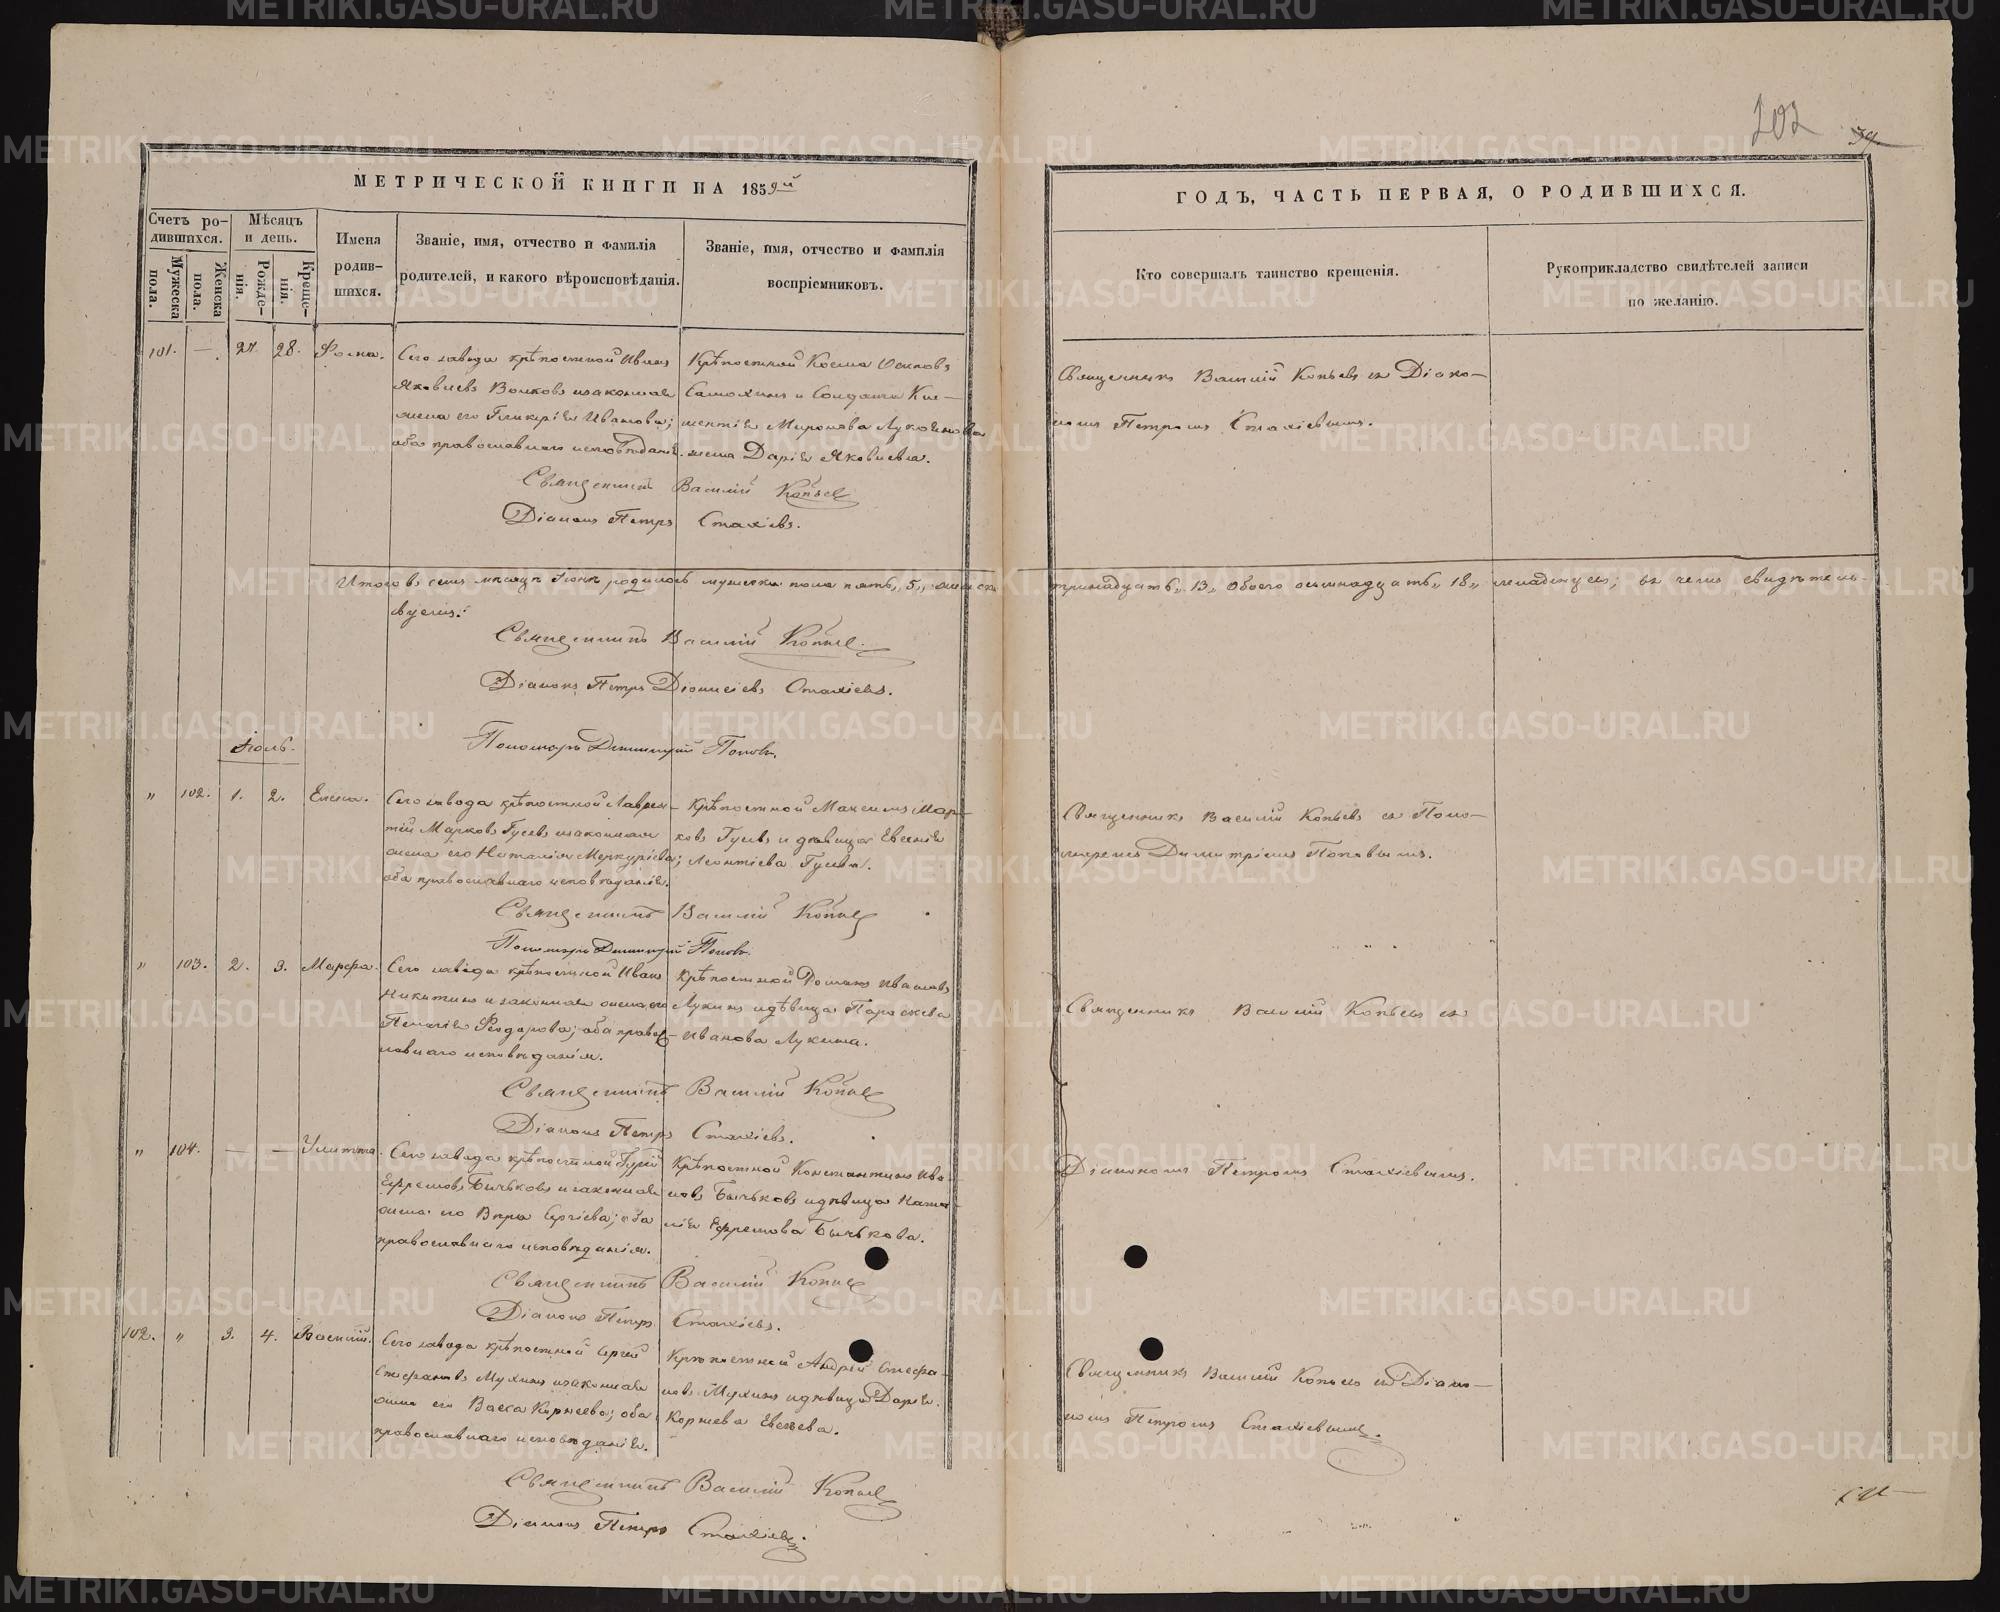 METRIKI.GASO-URAL.RU
202
39
МЕТРИЧЕСКОЙ КНИГИ НА 1859й
Счетъ ро-
дившихся.
Мужеска пола.
Женска пола.
Мѣсяцъ
и день.
Рожде-
нія.
Креще-
нія.
Имена
родив-
шихся.
Званіе, имя, отчество и фамилія
родителей, и какого вѣроисповѣданія.
Званіе, имя, отчество и фамилія
воспріемниковъ.
ГОДЪ, ЧАСТЬ ПЕРВАЯ, О РОДИВШИХСЯ.
Кто совершалъ таинство крещенія.
Рукоприкладство свидѣтелей записи
по желанію.
101. — 27. 28. Фома.
Сего завода крѣпостной Иванъ
Яковлевъ Волковъ и законная
жена его Гликерія Иванова;
оба православнаго исповѣданія.
Крѣпостной Косма Осиповъ
Самохинъ и Солдата
Миронова
жена Дарія Яковлева.
Священникъ Василій Копьевъ съ Діако-
номъ Петромъ Стахіевымъ.
Священникъ Василій Копьев
Діаконъ Петръ Стахіевъ.
Итого въ семъ мѣсяцѣ Іюнѣ родилось мужеска пола пять „5„ женска
тринадцать „13„ обоего осьмнадцать „18„ младенцевъ; въ чемъ свидѣтель-
вуемъ:
Священникъ Василій Копьев.
Діаконъ Петръ Діонисіевъ Стахіевъ.
Пономарь Димитрій Поповъ.
Іюль.
„ 102. 1. 2. Елена.
Сего завода крѣпостной Лаврен-
тій Марковъ Гусевъ и законная
жена его Наталія Меркуріева;
оба православнаго исповѣданія.
Крѣпостной Максимъ Мар-
ковъ Гусевъ и дѣвица Евгенія
Леонтіева Гусева.
Священникъ Василій Копьевъ съ Поно-
маремъ Димитріемъ Поповымъ.
Священникъ Василій Копьев
Пономарь Димитрій Поповъ.
„ 103. 2. 3. Марфа.
Сего завода крѣпостной Иванъ
Никитинъ и законная жена его
Пелагія Феодорова; оба правос-
лавнаго исповѣданія.
Крѣпостной Романъ Ивановъ
Лукинъ и дѣвица Параскева
Иванова Лукина.
Священникъ Василій Копьевъ съ
Священникъ Василій Копьев
Діаконъ Петръ Стахіевъ.
„ 104. — — Улитта.
Сего завода крѣпостной Гурій
Ефремовъ Бычковъ и законная
жена его Вѣра Сергіева; оба
православнаго исповѣданія.
Крѣпостной Константинъ Ива-
новъ Бычковъ и дѣвица Ната-
лія Ефремова Бычкова.
Діакономъ Петромъ Стахіевымъ.
Священникъ Василій Копьев
Діаконъ Петръ Стахіевъ.
102. „ 3. 4. Василій.
Сего завода крѣпостной Сергей
Стефановъ Мухинъ и законная
жена его Васса Корнеева; оба
православнаго исповѣданія.
Крѣпостной Андрей Стефа-
новъ Мухинъ и дѣвица Дарія
Корнеева
Священникъ Василій Копьевъ съ Діако-
номъ Петромъ Стахіевымъ.
Священникъ Василій Копьев
Діаконъ Петръ Стахіевъ.